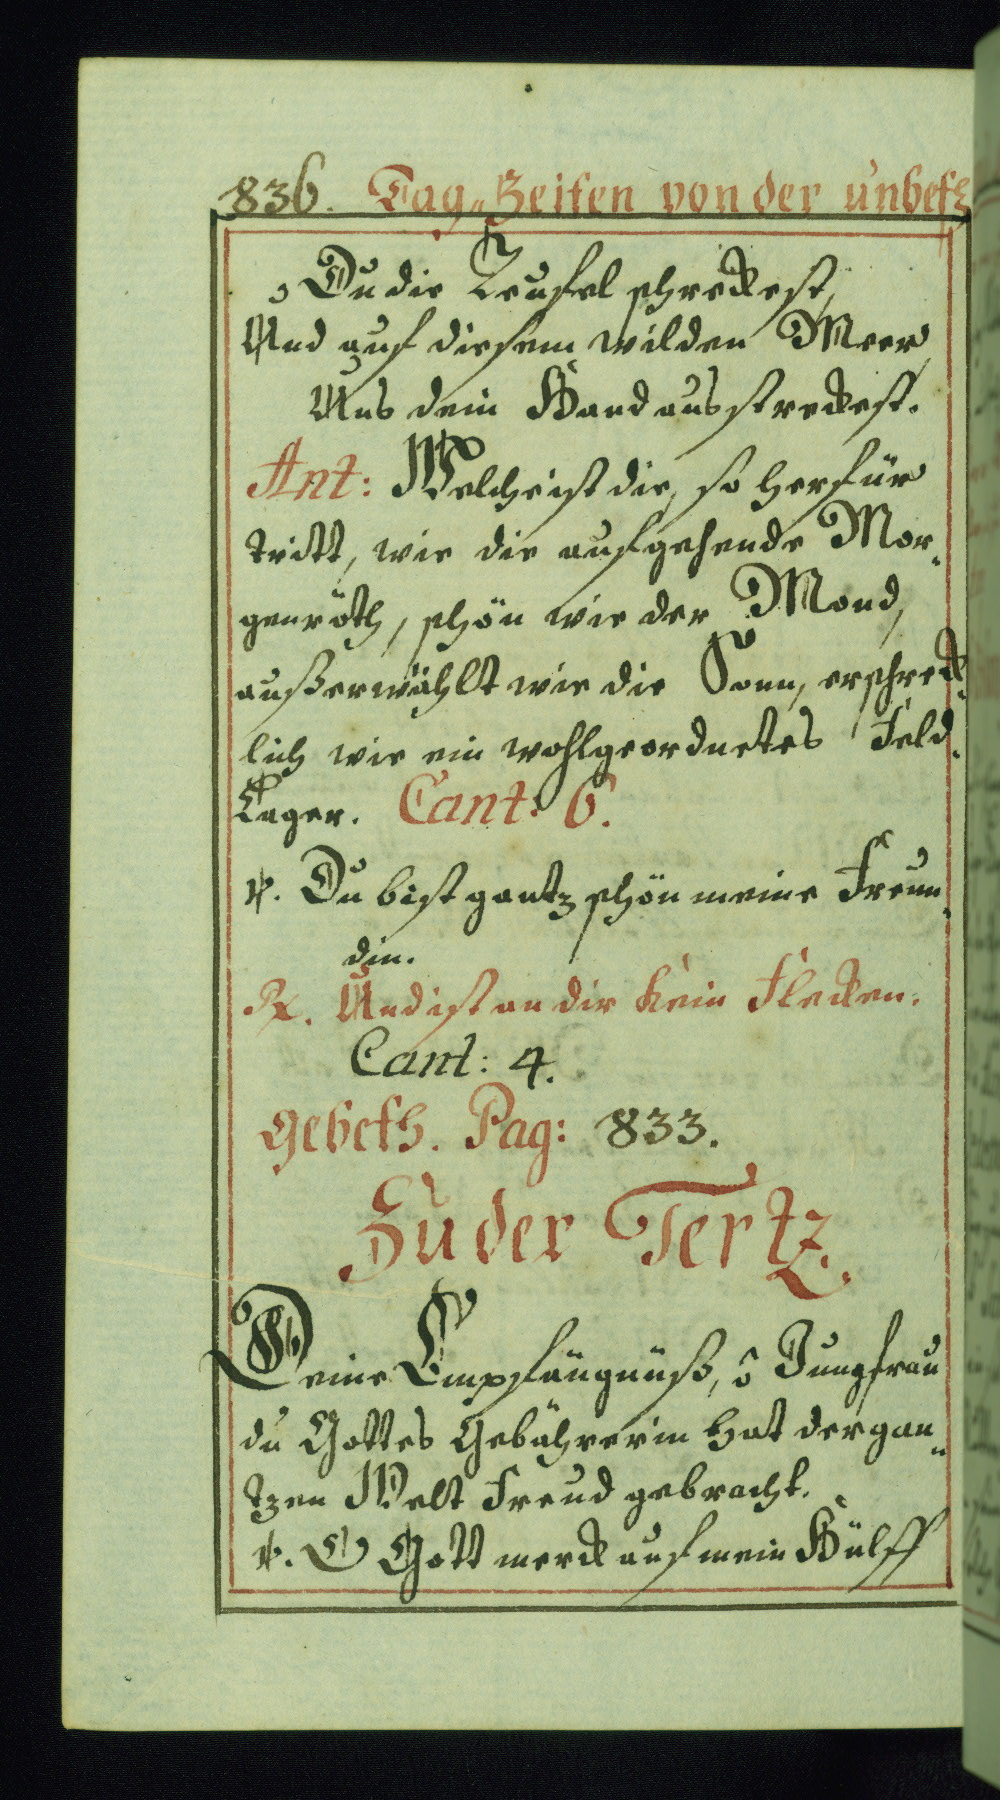 836. Tag-Zeiten von der unbefl.
Du die Teufel schreckest,
Und auf diesem wilden Meer
Uns dein Hand ausstreckest.
Ant: Welche ist die, so herfür
tritt, wie die aufgehende Mor-
genröth, schön wie der Mond,
außerwählt wie die Sonn, erschreck-
lich wie ein wohlgeordnetes Feld-
Lager. Cant: 6.
℣. Du bist gantz schön meine Freun-
din.
℟. Und ist an dir kein Flecken.
Cant: 4.
Gebeth. Pag: 833.
Zu der Tertz.
Deine Empfängnüß, ô Jungfrau
du Gottes Gebährerin hat der gan-
tzen Welt Freud gebracht.
℣. O Gott merck auf mein Hülff